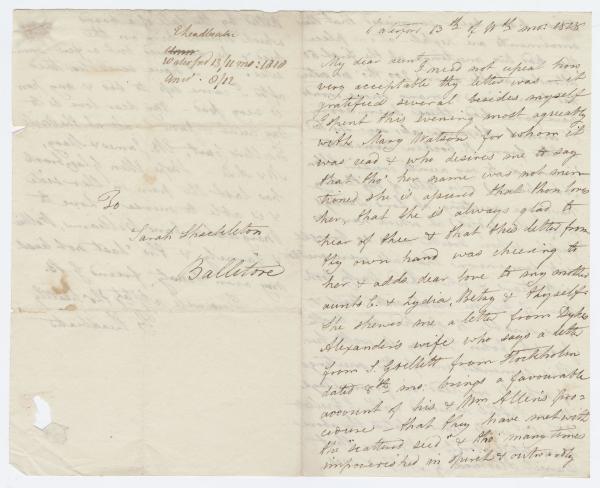 E Leadbeater
Waterford 13/11 mo: 1818
Ansd. 8/12
To
Sarah Shackleton
Ballitore
13th of 11th mo: 1818
My dear aunt
I need not repeat how
very acceptable thy letter was — it
gratified several besides myself
I spent this evening most agreeably
with Mary Watson for whom it
was read & who desires me to say
that tho' her name was not men
tioned she is assured that thou loves
her, that she is always glad to
hear of thee & that this letter from
thy own hand was cheering to
her & adds dear love to my mother
aunts & Lydia, Betsy & thyself
She shewed me a letter from
Alexander's wife who says a letter
from S. Grellett from Stockholm
dated 8th mo. brings a favourable
account of his & Wm Allen's pro=
cedure — that they have met with
the "scattered seed" & tho' many times
impoverished in spirit & outwardly